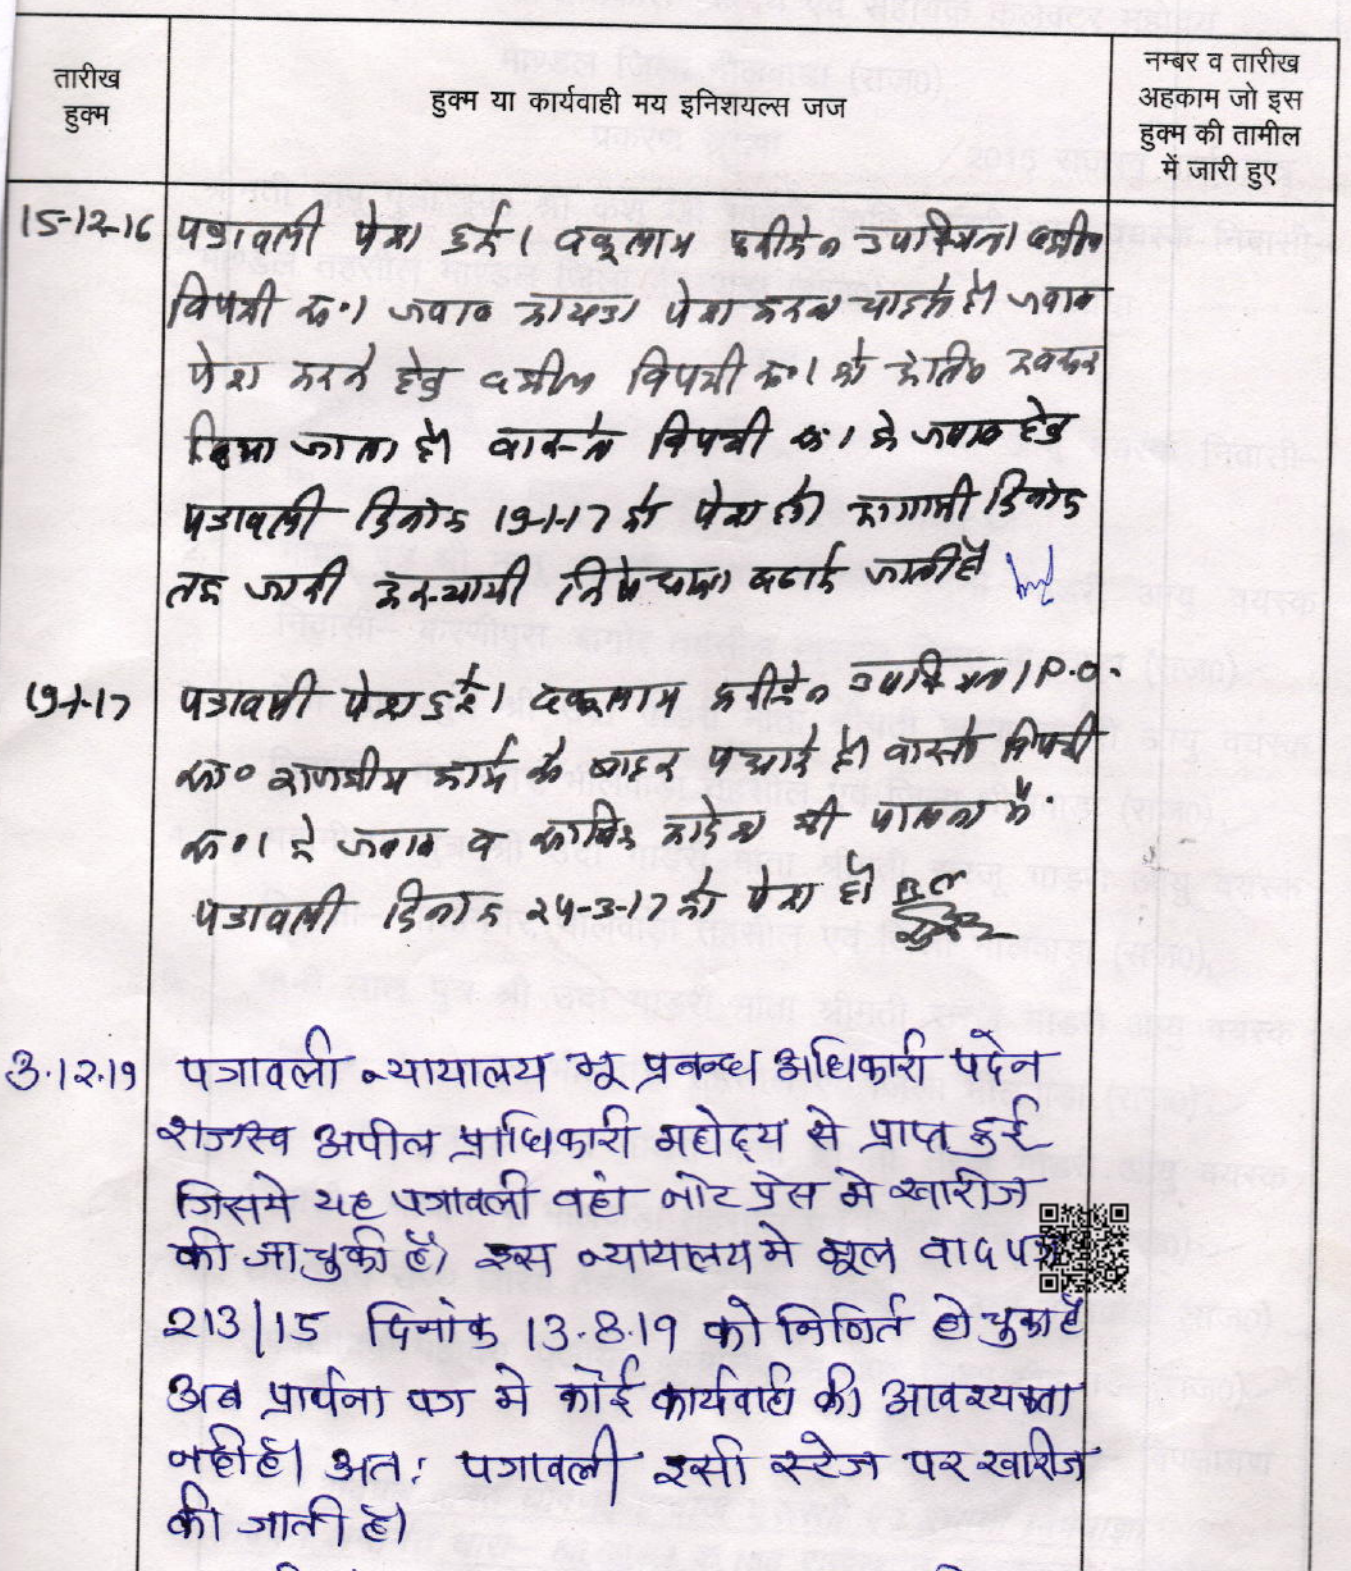 तारीख
हुक्म
हुक्म या कार्यवाही मय इनिशयल्स जज
नम्बर व तारीख
अहकाम जो इस
हुक्म की तामील
में जारी हुए
15-12-16 पत्रावली पेश हुई। वकूलाय फरीकेन उपस्थित। वकील
विपक्षी क्र.1 जवाब पेश करना चाहते है। जवाब
पेश करने हेतु वकील विपक्षी क्र.1 को अंतिम अवसर
दिया जाता है। वास्ते विपक्षी क्र.1 के जवाब हेतु
पत्रावली दिनांक 19-1-17 को पेश हो। आगामी दिनांक
तक जारी अस्थायी निषेधाज्ञा बढाई जाती है
19-1-17 पत्रावली पेश हुई। वकूलाय फरीकेन उपस्थित। P.O.
सा० राजकीय कार्य से बाहर पधारे है। वास्ते विपक्षी
क्र.1 के जवाब व साबिक आदेश की पालना में
पत्रावली दिनांक 24-3-17 को पेश हो
3.12.19 पत्रावली न्यायालय भू प्रबन्ध अधिकारी पदेन
राजस्व अपील प्राधिकारी महोदय से प्राप्त हुई
जिसमे यह पत्रावली वहां नोट प्रेस मे खारीज
की जा चुकी है। इस न्यायालय मे मूल वाद
213/15 दिनांक 13.8.19 को निर्णित हो चुका है
अब प्रार्थना पत्र मे कोई कार्यवाही की आवश्यक्ता
नही है। अतः पत्रावली इसी स्टेज पर खारीज
की जाती है।